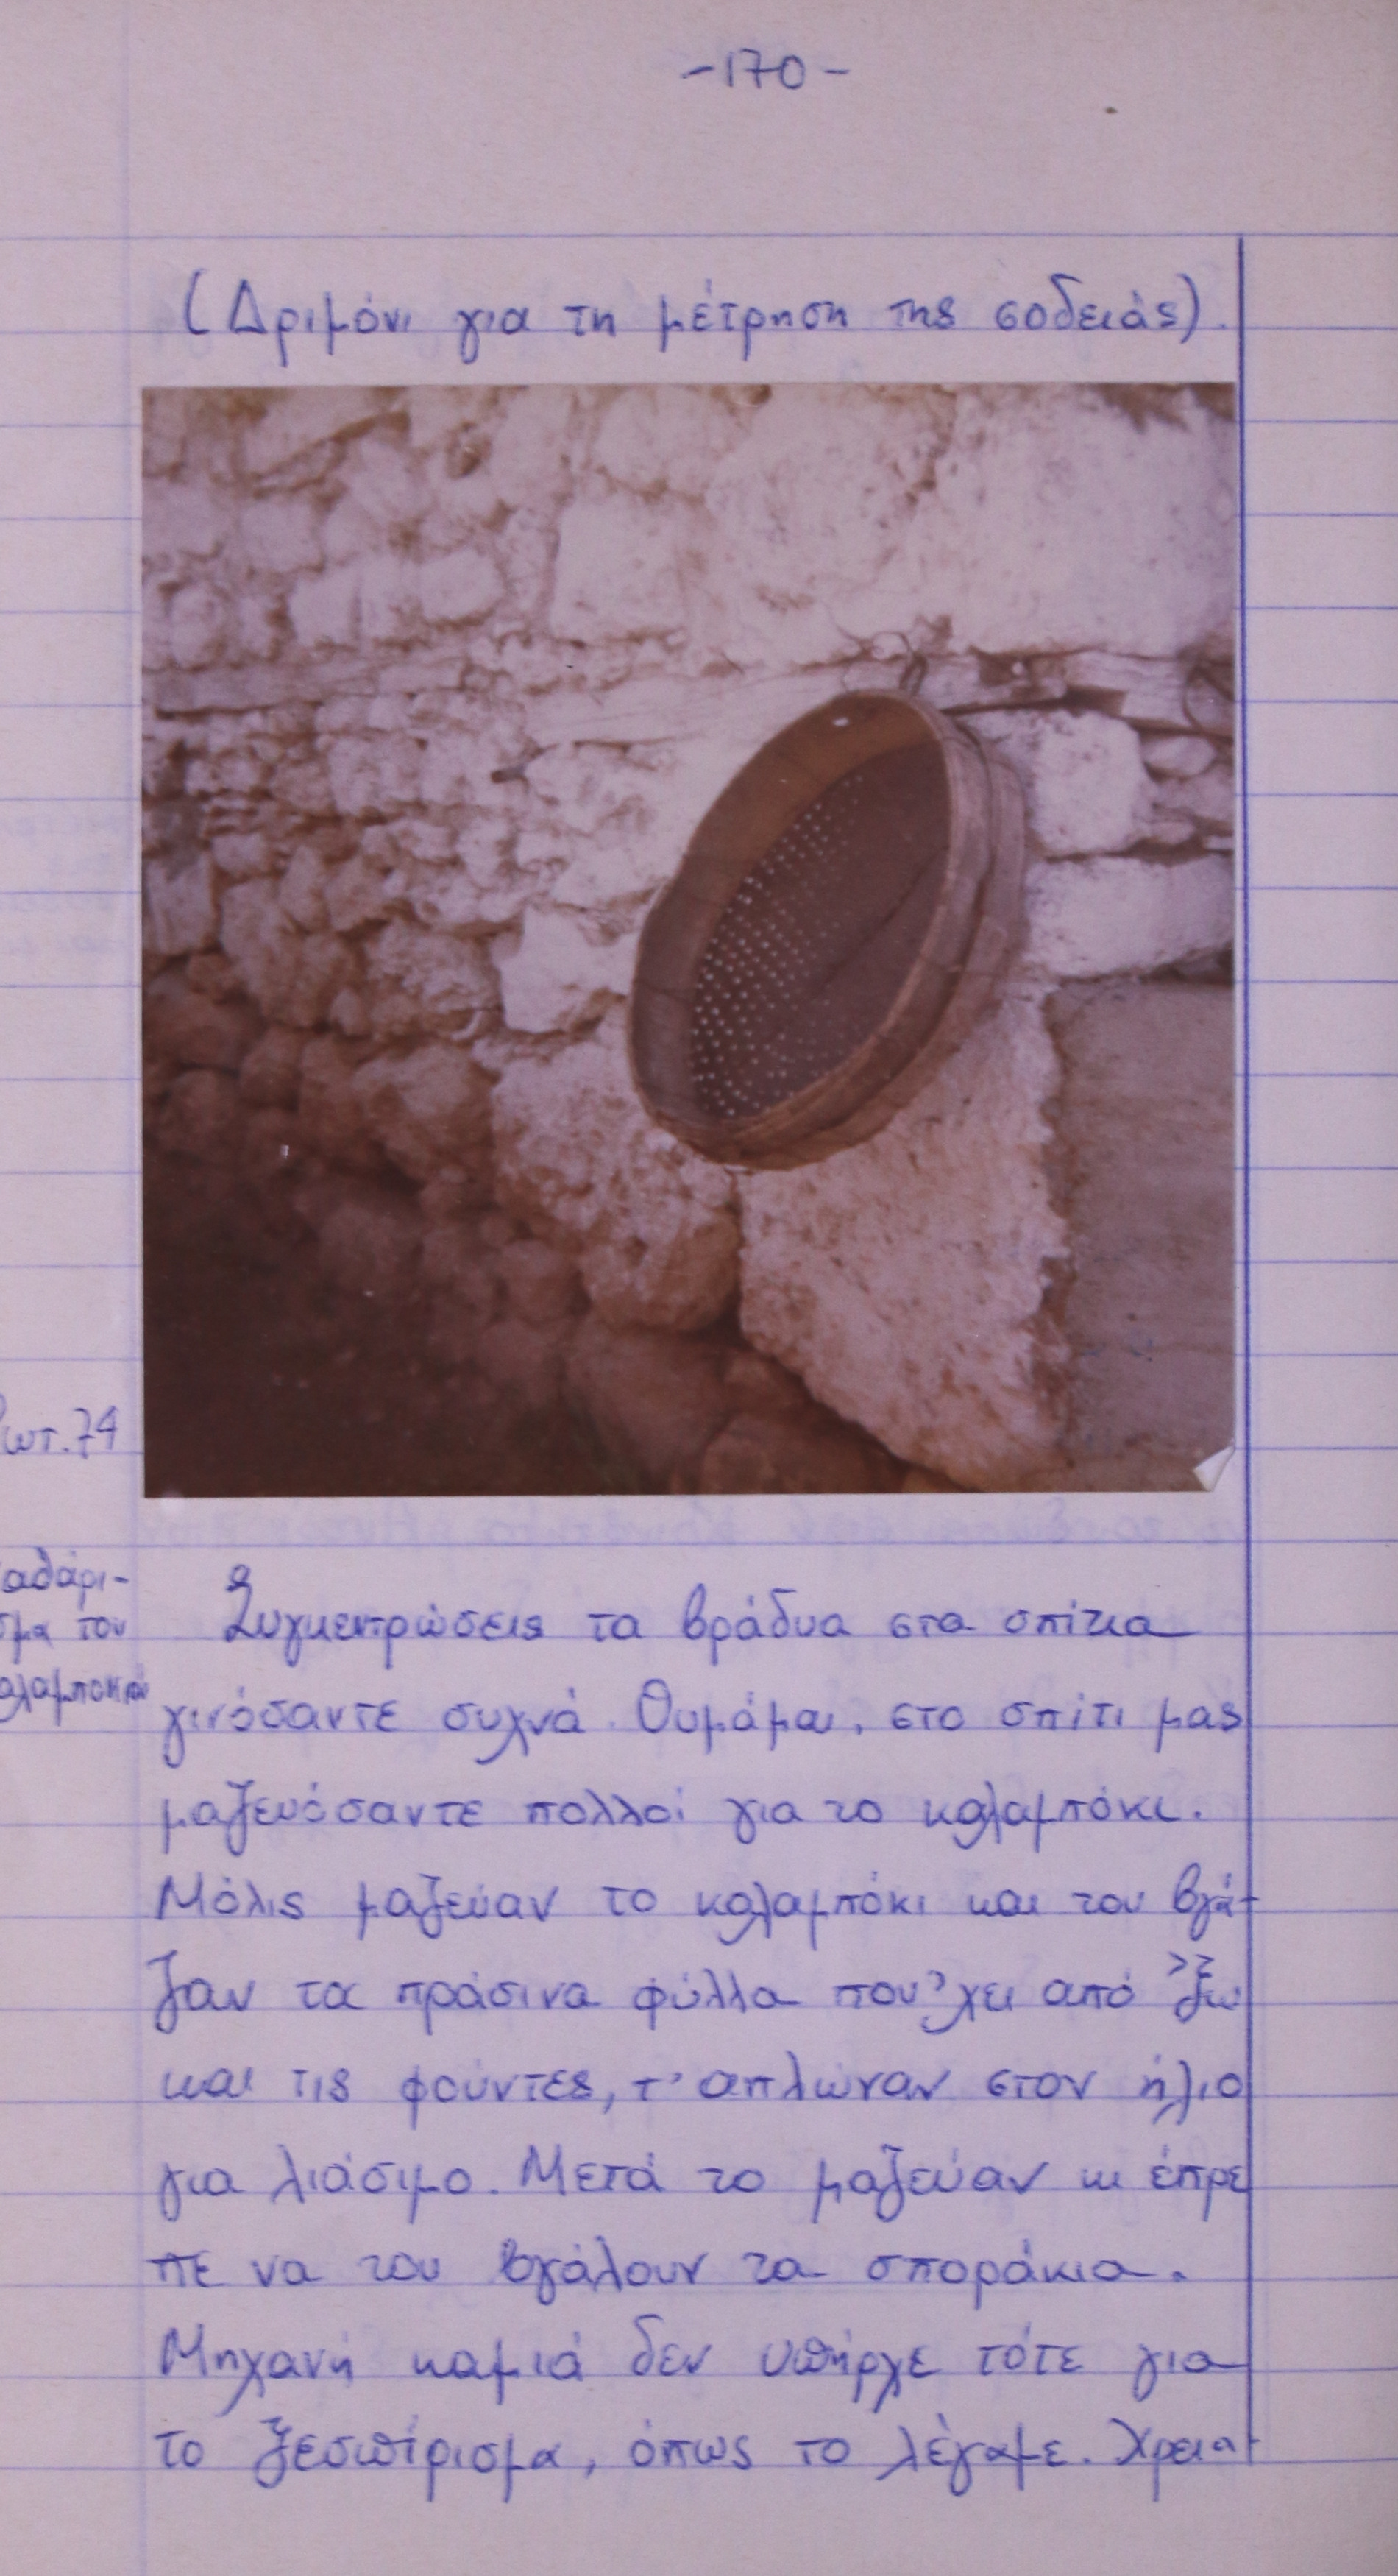 -170-
(Δριμόνι για τη μέτρηση της σοδειάς).
Φωτ.74
αθάρι-
σμα του
αλαμποκιού
Συγκεντρώσεις τα βράδυα στα σπίτια
γινόσαντε συχνά. Θυμάμαι, στο σπίτι μας
μαζευόσαντε πολλοί για το καλαμπόκι.
Μόλις μαζεύαν το καλαμπόκι και του βγά-
ζαν τα πράσινα φύλλα που 'χει από 'ξω
και τις φούντες, τ' απλώναν στον ήλιο
για λιάσιμο. Μετά το μαζεύαν κι έπρε
πε να του βγάλουν τα σποράκια.
Μηχανή καμιά δεν υπήρχε τότε για
το ξεσπίρισμα, όπως το λέγαμε. Χρεια-